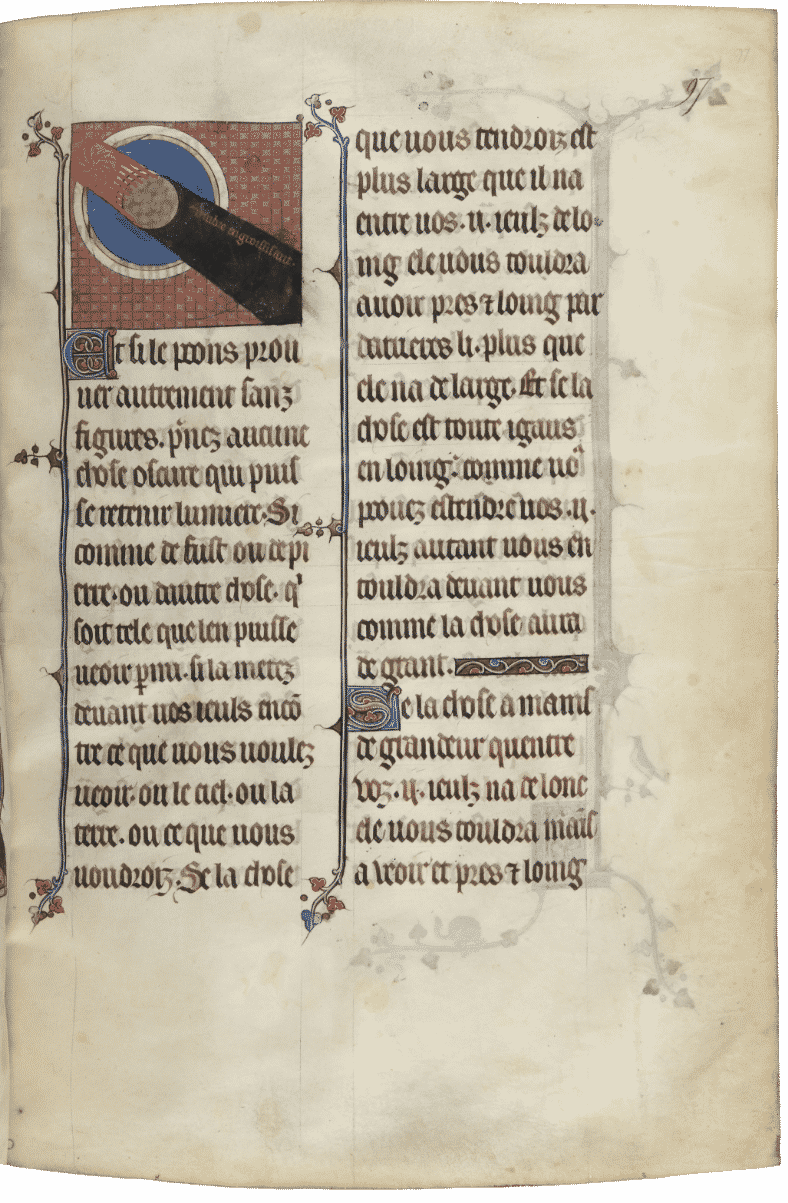 97
umbre engroississant.
Et si le poons prou
uer autrement sanz
figures. p̾nez aucune
chose oscure qui puis
se retenir lumiere. Si
comme de fust ou de pi
erre. ou dautre chose. qͥ
soit tele que len puisse
ueoir ꝑmi. si la metez
deuant uos ieuls encō
tre ce que uous uoulez
ueoir. ou le ciel. ou la
terre. ou ce que uous
uoudroiz. Se la chose
que uous tendroiz est
plus large que il na
entre uos .ij. ieulz de lo
ing ele uous touldra
auoir pres ⁊ loing par
datueres li. plus que
ele na de large. Et se la
chose est toute igaus
en loing. comme uoꝰ
pouez estendre uos .ij.
ieulz autant uous en
touldra deuant uous
comme la chose aura
de grant.
Se la chose a mains
de grandeur quentre
voz .ij. ieulz na de lonc
ele uous touldra mais
a veoir et pres ⁊ loing